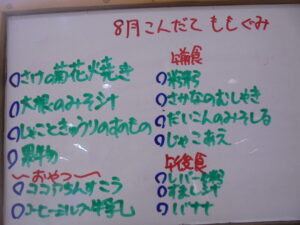 8月こんだて ももぐみ
さけの菊花焼き
大根のみそ汁
じゃこときゅうりのすのもの
果物
〜おやつ〜
ココアちんすこう
コーヒーミルク牛乳
午前食
粉粥
さかなのむしやき
だいこんのみそしる
じゃこあえ
午後食
レバー粥
すまし汁
バナナ